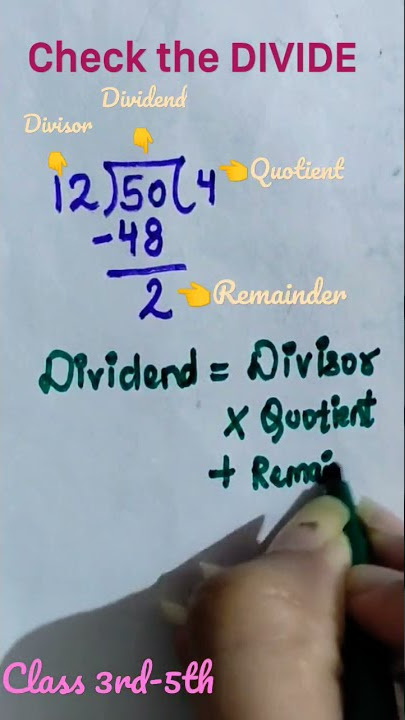 Check the DIVIDE
Dividend
Divisor
12)50(4
Quotient
-48
2
Remainder
Dividend = Divisor
x Quotient
+ Remai
Class 3rd-5th